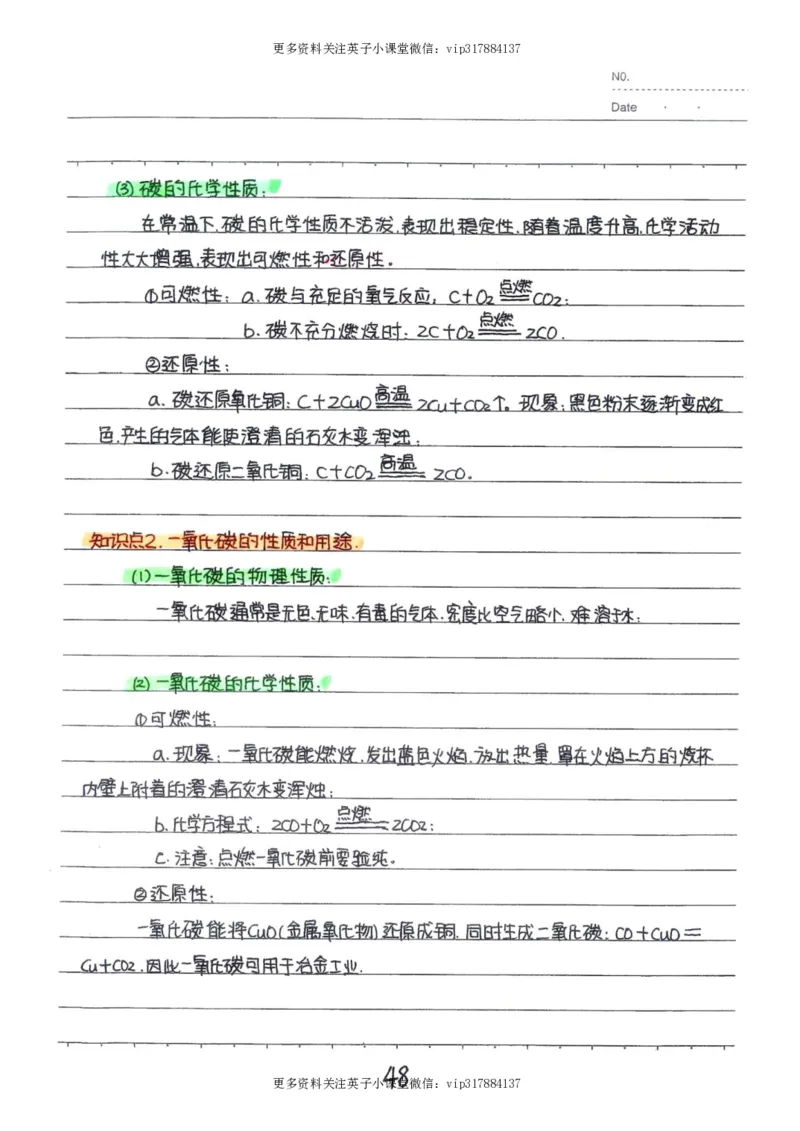 更多资料关注英子小课堂微信：vip317884137
NO.
Date · ·
(3) 碳的化学性质：
在常温下，碳的化学性质不活泼，表现出稳定性，随着温度升高，化学活动
性大大增强，表现出可燃性和还原性。
①可燃性：a. 碳与充足的氧气反应：C+O₂ 点燃═ CO₂；
b. 碳不充分燃烧时：2C+O₂ 点燃═ 2CO.
②还原性：
a. 碳还原氧化铜：C+2CuO 高温═ 2Cu+CO₂↑。现象：黑色粉末逐渐变成红
色，产生的气体能使澄清的石灰水变浑浊；
b. 碳还原二氧化铜：C+CO₂ 高温═ 2CO.
知识点2. 一氧化碳的性质和用途.
(1) 一氧化碳的物理性质：
一氧化碳通常是无色、无味、有毒的气体，密度比空气略小，难溶于水；
(2) 一氧化碳的化学性质：
①可燃性：
a. 现象：一氧化碳能燃烧，发出蓝色火焰，放出热量，罩在火焰上方的烧杯
内壁上附着的澄清石灰水变浑浊；
b. 化学方程式：2CO+O₂ 点燃═ 2CO₂；
c. 注意：点燃一氧化碳前要验纯。
②还原性：
一氧化碳能将CuO(金属氧化物)还原成铜，同时生成二氧化碳：CO+CuO═
Cu+CO₂，因此一氧化碳可用于冶金工业.
48
更多资料关注英子小课堂微信：vip317884137